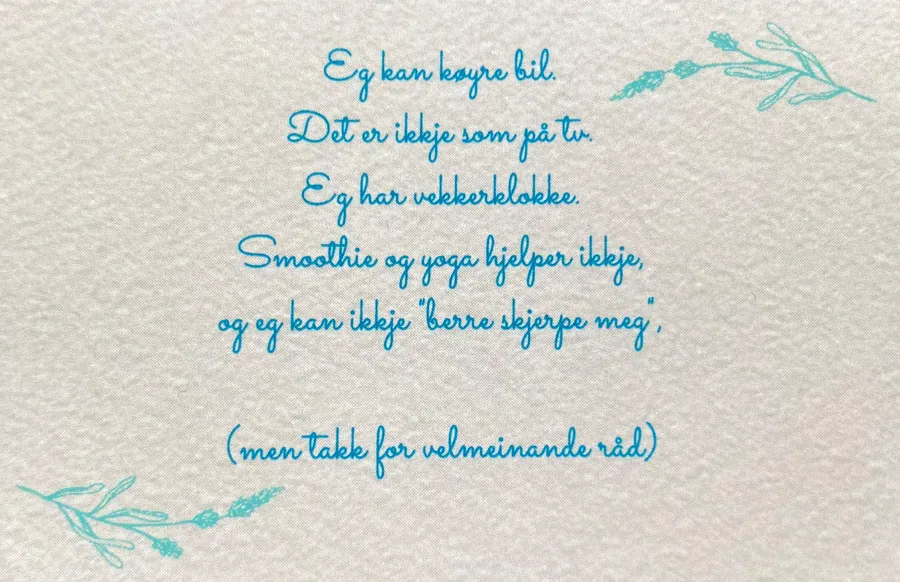 Eg kan køyre bil.
Det er ikkje som på tv.
Eg har vekkerklokke.
Smoothie og yoga hjelper ikkje,
og eg kan ikkje "berre skjerpe meg",
(men takk for velmeinande råd)